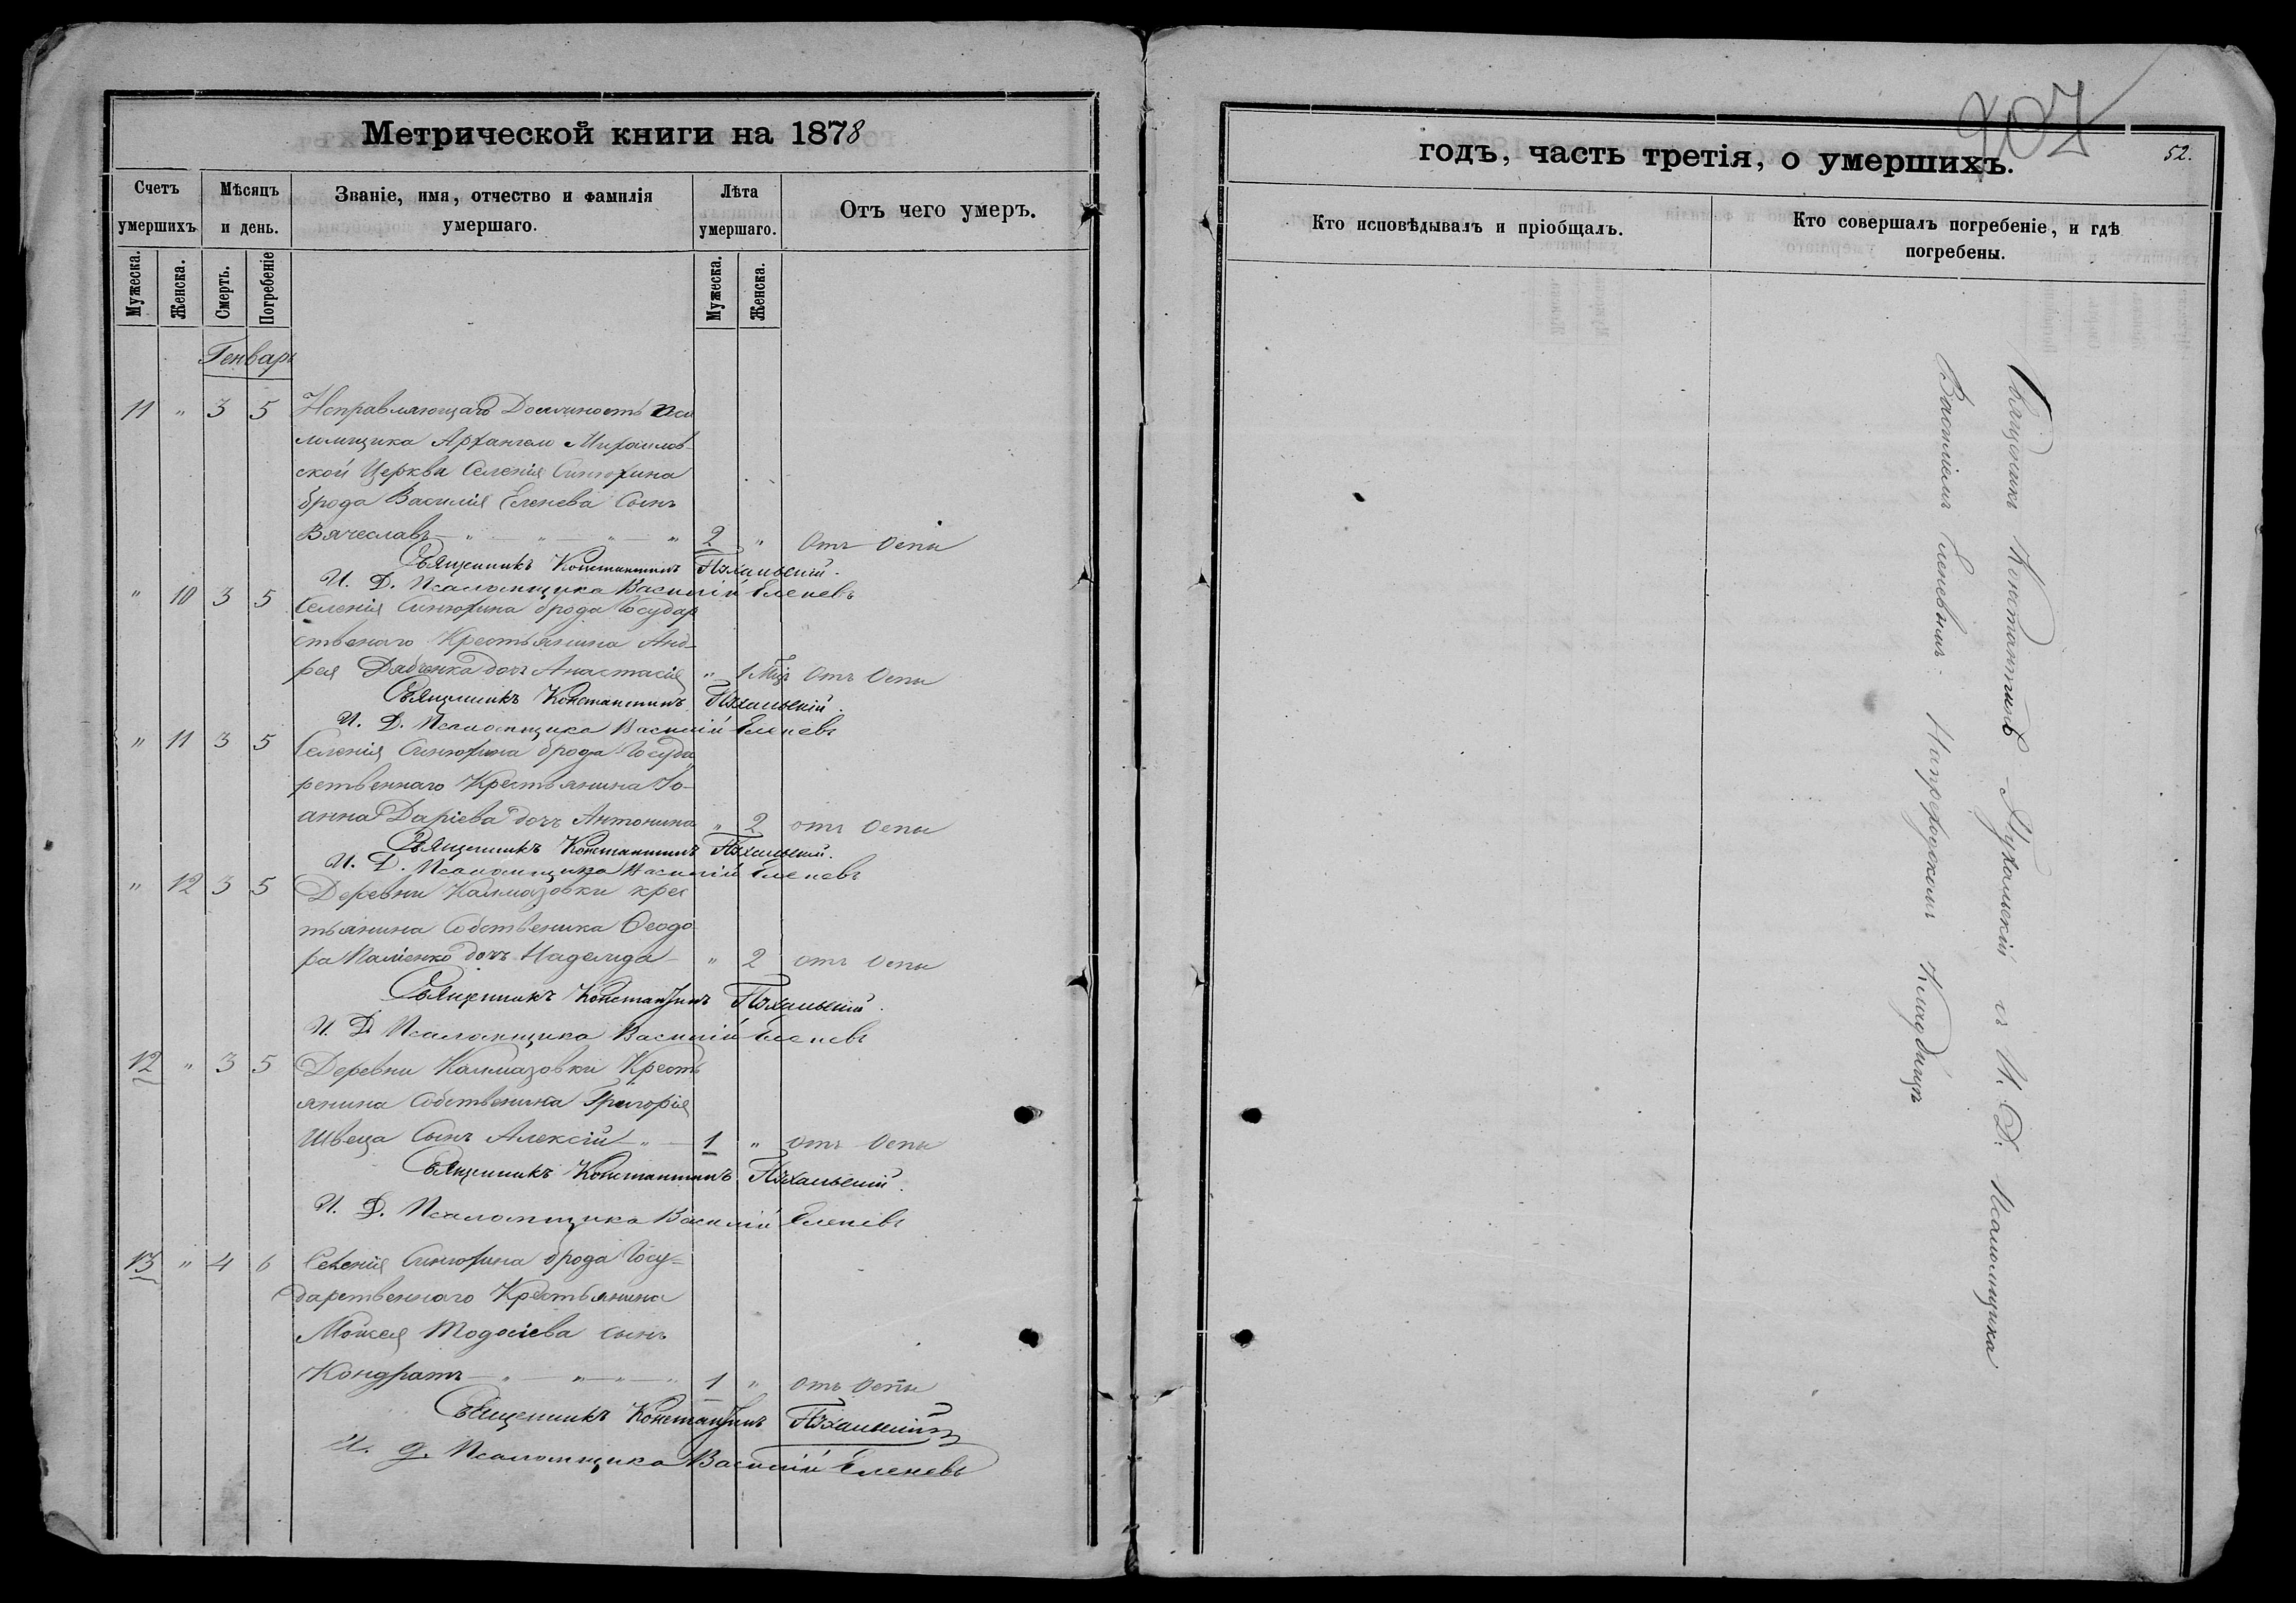 Метрической книги на 1878
Счетъ умершихъ.
Мѣсяцъ и день.
Званіе, имя, отчество и фамилія умершаго.
Лѣта умершаго.
Отъ чего умеръ.
Мужеска.
Женска.
Смерть.
Погребеніе
Мужеска.
Женска.
Генварь
11 " 3 5 Исправляющаго Должность Пса
ломщика Архангело Михаилов-
ской Церкви Селенія Синюхина
брода Василія Еленева Сынъ
Вячеславъ — " — " — " — " 2 " Отъ Оспы
Священникъ Константинъ Пухальскій.
И. Д. Псаломщика Василій Еленевъ
" 10 3 5 Селенія Синюхина брода Государ
ственаго Крестьянина Анд-
рея Дядченка дочь Анастасія " 1 Мца Отъ Оспы
Священникъ Константинъ Пухальскій.
И. Д. Псаломщика Василій Еленевъ
" 11 3 5 Селенія Синюхина брода Госуда
рственнаго Крестьянина Іо-
анна Даріева дочь Антонина " 2 отъ Оспы
Священникъ Константинъ Пухальскій.
И. Д. Псаломщика Василій Еленевъ
" 12 3 5 Деревни Калмазовки крес
тьянина Собственика Ѳеодо
ра дочь Надежда — " 2 отъ Оспы
Священникъ Константинъ Пухальскій.
И. Д. Псаломщика Василій Еленевъ
12 " 3 5 Деревни Калмазовки Кресть
янина Собственика Григорія
Швеца Сынъ Алексій — " — 1 " отъ Оспы
Священникъ Константинъ Пухальскій.
И. Д. Псаломщика Василій Еленевъ
13 " 4 6 Селенія Синюхина брода Госу-
дарственнаго Крестьянина
Мойсея Тодосіева сынъ
Кондратъ — " — " — " — " 1 " отъ Оспы
Священникъ Константинъ Пухальскій
И. д. Псаломщика Василій Еленевъ
годъ, часть третія, о умершихъ.
52.
Кто исповѣдывалъ и пріобщалъ.
Кто совершалъ погребеніе, и гдѣ погребены.
Священникъ Константинъ Пухальскій съ И. Д. Псаломщика
Василіемъ Еленевымъ. На приходскомъ Кладбищѣ